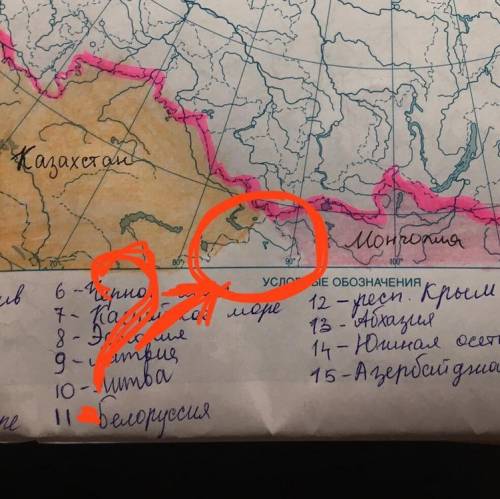 Казахстан
Монголия
70°
80°
90°
100°
УСЛОВНЫЕ ОБОЗНАЧЕНИЯ
ив
6 - Черное море
7 - Каспийское море
8 - Эстония
9 - Латвия
10 - Литва
11 - Белоруссия
12 - респ. Крым
13 - Абхазия
14 - Южная осет
15 - Азербайджа
ре